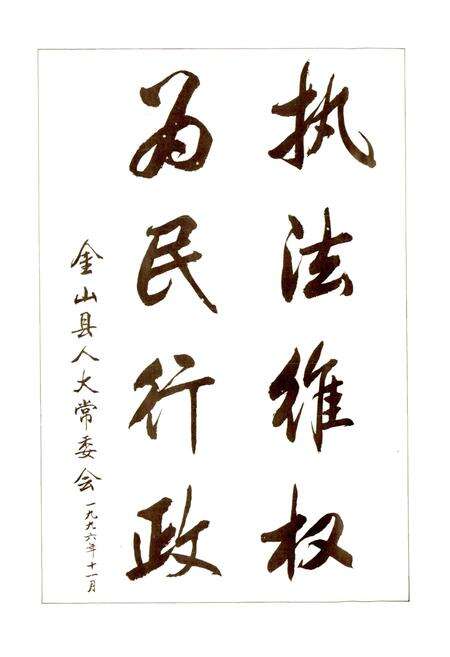 执法维权
为民行政
金山县人大常委会 一九九六年十一月